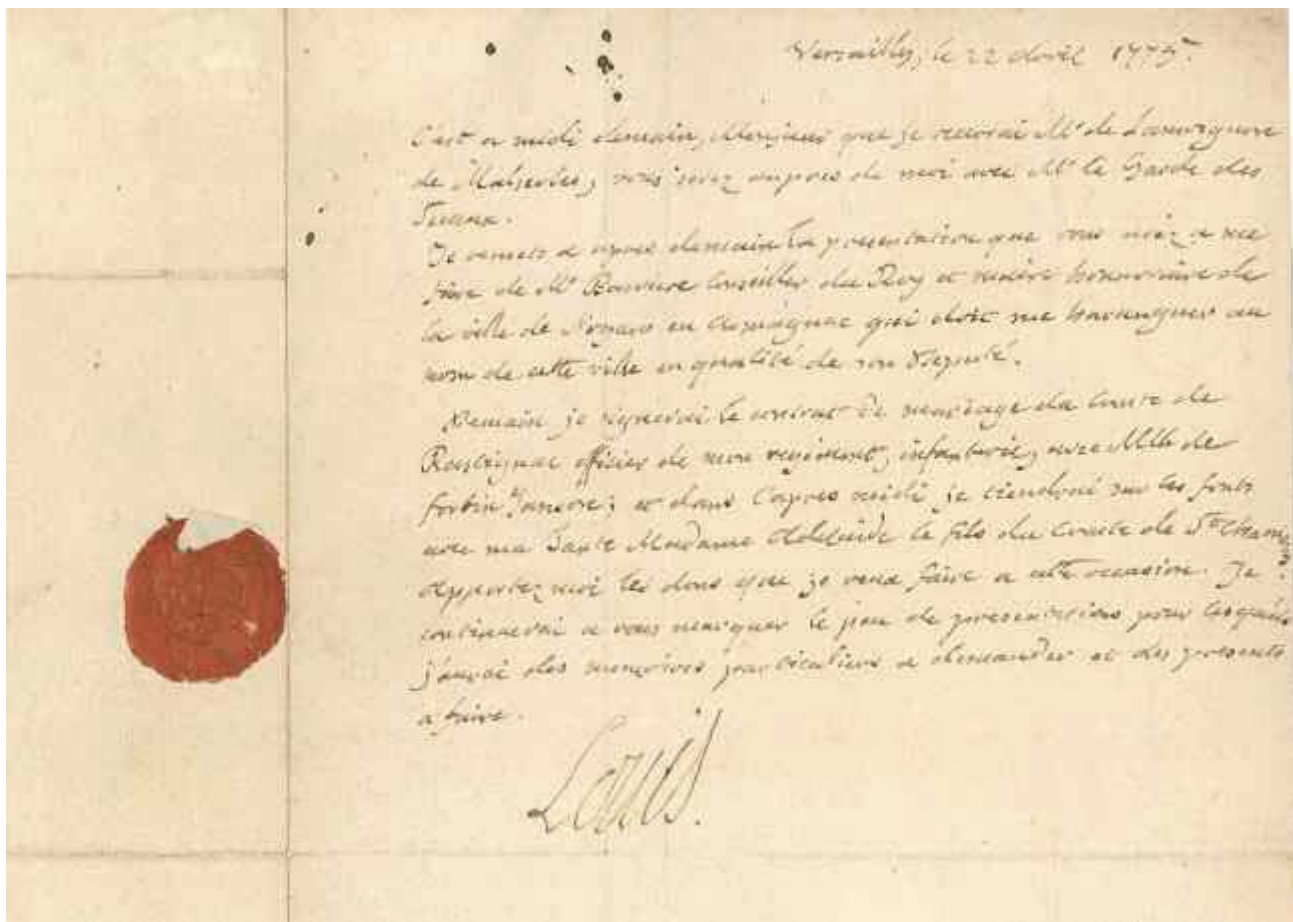 Versailles, le 22 Avril 1775.
C'est a midi demain, Monsieur que je recevrai Mr de Lamoignon
de Malherbes; vous serez aupres de moi avec Mr le Garde des
Sceaux.
Je remets a apres demain la presentation que vous avez a me
faire de Mr Conseiller du Roy et maire honoraire de
la ville de en Armagnac qui doit me haranguer au
nom de cette ville en qualité de son Deputé.
Demain je signerai le contrat de mariage du Comte de
Rastignac officier de mon regiment, infanterie, avec Mlle de
forbin Janson; et dans l'apres midi je tiendrai sur les fonts
avec ma Tante Madame Adelaide le fils du Comte de St Chamans
Apportez moi les dons que je veux faire a cette occasion. Je
continuerai a vous marquer le jour de presentations pour lesquels
j'aurai des memoires particuliers a demander et des presents
a faire.
Louis.